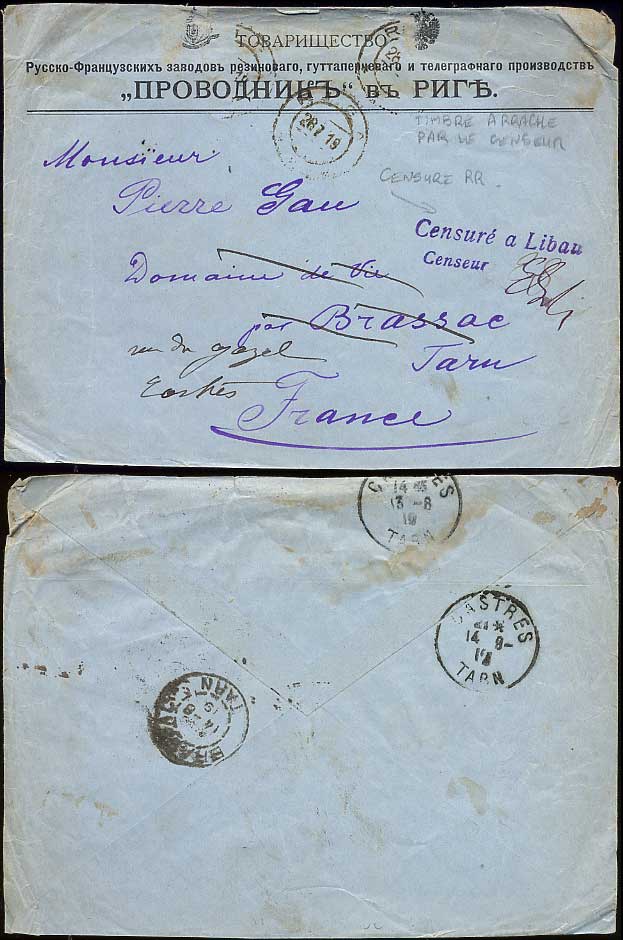 ТОВАРИЩЕСТВО
Русско-Французскихъ заводовъ резиноваго, гуттаперчеваго и телеграфнаго производствъ
„ПРОВОДНИКЪ" въ РИГѢ.
26 7 19
TIMBRE ARRACHE
PAR LE CENSEUR
CENSURE RR.
Monsieur
Pierre Gau
Censuré a Libau
Censeur
Domaine de Vie
par Brassac
rue du
Tarn
Castres
France
14
13 -8
19
TARN
CASTRES
14 8-
19
TARN
TARN
14